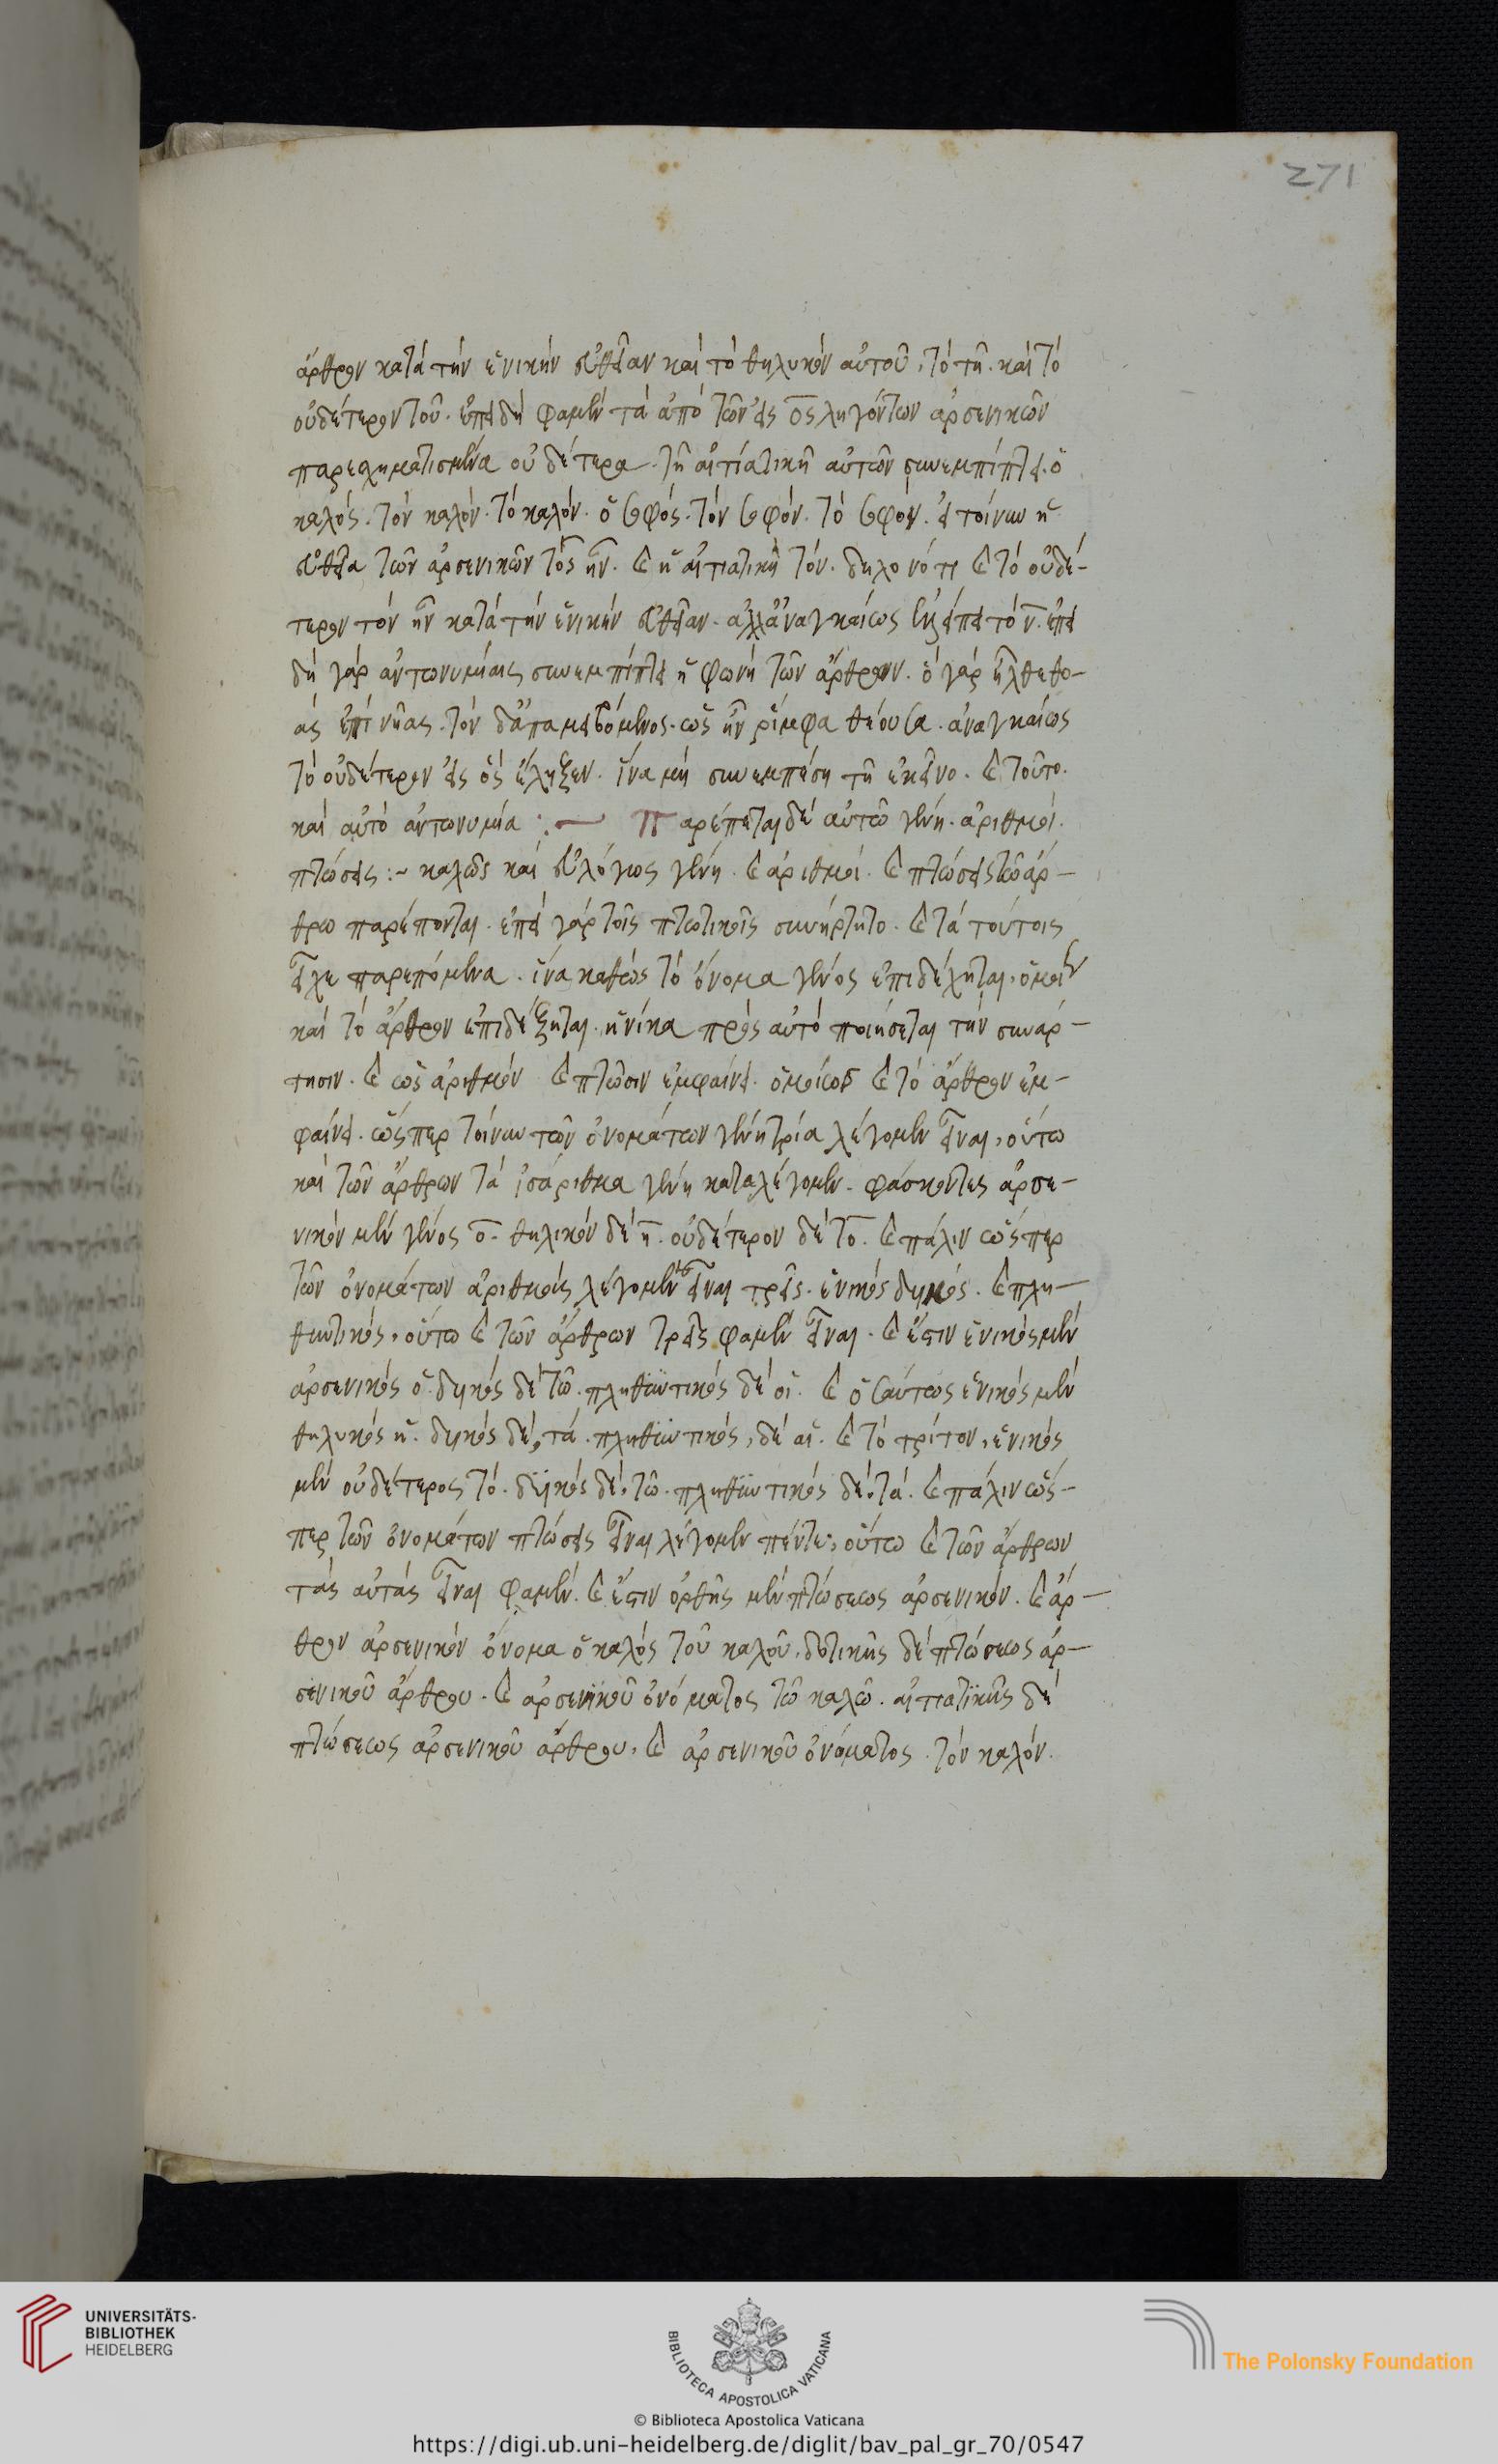 271
ἄρθρον κατὰ τὴν ἑνικὴν εὐθεῖαν καὶ τὸ θηλυκὸν αὐτοῦ, τὸ τῆ. καὶ τὸ
οὐδέτερον τοῦ. ἐπειδὴ φαμὲν τὰ ἀπὸ τῶν εἰς ος ληγόντων ἀρσενικῶν
παρεσχηματισμένα οὐδέτερα. τῇ αἰτιατικῇ αὐτῶν συνεμπίπτει. ὁ
καλός. τὸν καλόν. τὸ καλόν. ὁ σοφός. τὸν σοφόν. τὸ σοφόν. εἰ τοίνυν ἡ
εὐθεῖα τῶν ἀρσενικῶν τὸς ἦν. καὶ ἡ αἰτιατικὴ τόν. δηλονότι καὶ τὸ οὐδέ-
τερον τὸν ἦν κατὰ τὴν ἑνικὴν εὐθεῖαν. ἀλλ' ἀναγκαίως τὸ ν. ἐπει
δὴ γὰρ ἀντωνυμίαις συνεμπίπτει ἡ φωνὴ τῶν ἄρθρων. ὁ γὰρ ἦλθε θο-
ὰς ἐπὶ νῆας. τὸν δ' ἀπαμειβόμενος. ὡς ἦν ῥίμφα θέουσα. ἀναγκαίως
τὸ οὐδέτερον εἰς ὃς ἔληξεν. ἵνα μὴ συνεμπέσῃ τῇ ἐκεῖνο. καὶ τοῦτο.
καὶ αὐτὸ ἀντωνυμία :— Παρέπεται δὲ αὐτῷ γένη. ἀριθμοί.
πτώσεις :~ καλῶς καὶ εὐλόγως γένη. καὶ ἀριθμοί. καὶ πτώσεις τῷ ἄρ-
θρω παρέπονται. ἐπεὶ γὰρ τοῖς πτωτικοῖς συνήρτητο. καὶ τὰ τούτοις
εἶχε παρεπόμενα. ἵνα καθὼς τὸ ὄνομα γένος ἐπιδέχηται, ὁμοίως
καὶ τὸ ἄρθρον ἐπιδέξηται. ἡνίκα πρὸς αὐτὸ ποιήσεται τὴν συνάρ-
τησιν. καὶ ὡς ἀριθμὸν καὶ πτῶσιν ἐμφαίνει. ὁμοίως καὶ τὸ ἄρθρον ἐμ-
φαίνει. ὥσπερ τοίνυν τῶν ὀνομάτων γένη τρία λέγομεν εἶναι, οὕτω
καὶ τῶν ἄρθρων τὰ ἰσάριθμα γένη καταλέγομεν. φάσκοντες ἀρσε-
νικὸν μὲν γένος ο. θηλικὸν δὲ η. οὐδέτερον δὲ το. καὶ πάλιν ὥσπερ
τῶν ὀνομάτων ἀριθμοὺς λέγομεν εἶναι τρεῖς. ἑνικός δυικός. καὶ πλη-
θυντικός, οὕτω καὶ τῶν ἄρθρων τρεῖς φαμὲν εἶναι. καὶ ἔστιν ἑνικὸς μὲν
ἀρσενικὸς ὁ. δυικὸς δὲ τώ. πληθυντικὸς δὲ οἱ. καὶ ὡσαύτως ἑνικὸς μὲν
θηλυκὸς ἡ. δυικὸς δὲ, τά. πληθυντικός, δὲ αἱ. καὶ τὸ τρίτον, ἑνικὸς
μὲν οὐδέτερος τό. δυϊκὸς δὲ, τώ. πληθυντικὸς δὲ, τά. καὶ πάλιν ὥσ-
περ τῶν ὀνομάτων πτώσεις εἶναι λέγομεν πέντε, οὕτω καὶ τῶν ἄρθρων
τὰς αὐτὰς εἶναι φαμέν. καὶ ἔστιν ὀρθῆς μὲν πτώσεως ἀρσενικόν. καὶ ἄρ-
θρον ἀρσενικὸν ὄνομα ὁ καλός τοῦ καλοῦ. δοτικῆς δὲ πτώσεως ἀρ-
σενικοῦ ἄρθρου. καὶ ἀρσενικοῦ ὀνόματος τῷ καλῷ. αἰτιατικῆς δὲ
πτώσεως ἀρσενικοῦ ἄρθρου, καὶ ἀρσενικοῦ ὀνόματος. τὸν καλόν.
UNIVERSITÄTS-
BIBLIOTHEK
HEIDELBERG
BIBLIOTECA APOSTOLICA VATICANA
The Polonsky Foundation
© Biblioteca Apostolica Vaticana
https://digi.ub.uni-heidelberg.de/diglit/bav_pal_gr_70/0547